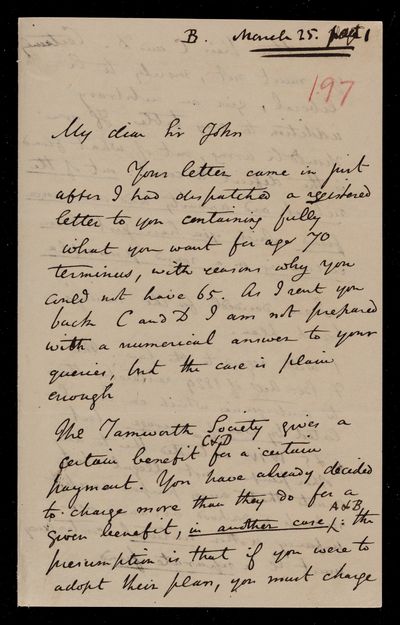 B. March 25. page 1
197
My dear Sir John
Your letter came in just
after I had despatched a registered
letter to you containing fully
what you want for age 70
terminus, with reasons why you
could not have 65. As I sent you
back C and D I am not prepared
with a numerical answer to your
queries, but the case is plain
enough
The Tamworth Society gives a
C&D
certain benefit for a certain
payment. You have already decided
to charge more than they do for a
A&B
given benefit, in another case: the
presumption is that if you were to
adopt their plan, you must charge